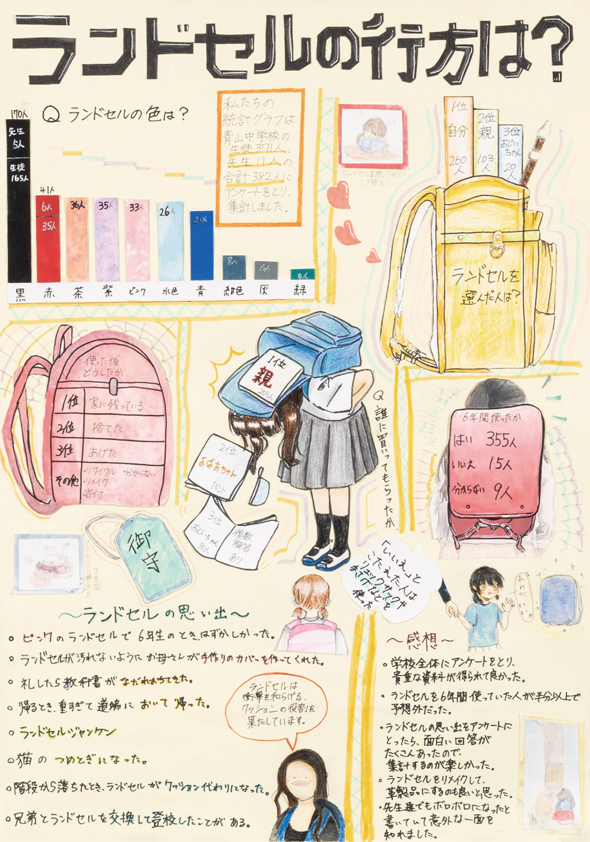 ランドセルの行方は?
Q ランドセルの色は?
170人
先生
5人
生徒
165人
41人
6人
35人
36人
35人
33人
26人
8人
黒 赤 茶 紫 ピンク 水色 青 紺色 灰 緑
私たちの
統計グラフは
青山中学校の
生徒371人、
先生11人の
合計382人に
アンケートをとり、
集計しました。
1位
自分
260人
2位
親
103人
3位
おじいちゃん
20人
ランドセルを
選んだ人は?
使った後
どうしたか
1位 家に残っている
2位 捨てた
3位 あげた
その他
・リサイクル ・分からない
・リメイク
・寄付
御守
Q 誰に買ってもらったか
1位
親
2位
おばあちゃん
3位
おじいちゃん
複数
回答
あり
6年間使ったか
はい 355人
いいえ 15人
分からない 9人
「いいえ」と
こたえた人は
リュックサックや
手さげなどを
使った
~ランドセルの思い出~
○ ピンクのランドセルで 6年生のとき、はずかしかった。
○ ランドセルが汚れないように お母さんが手作りのカバーを作ってくれた。
○ 礼したら教科書がながれおちてきた。
○ 帰るとき、重すぎて道端に おいて 帰った。
○ ランドセルジャンケン
○ 猫の つめとぎになった。
○ 階段から落ちたとき、ランドセルが クッション代わりになった。
○ 兄弟とランドセルを交換して登校したことがある。
ランドセルは
衝撃を和らげる、
クッションの役割を
果たしています。
~感想~
・学校全体にアンケートをとり、
貴重な資料が得られて良かった。
・ランドセルを6年間使っていた人が半分以上で
予想外だった。
・ランドセルの思い出をアンケートに
とったら、面白い回答が
たくさんあったので、
集計するのが楽しかった。
・ランドセルをリメイクして、
革製品にするのも良いと思った。
・先生達でもボロボロになったと
書いていて意外な一面を
知れました。